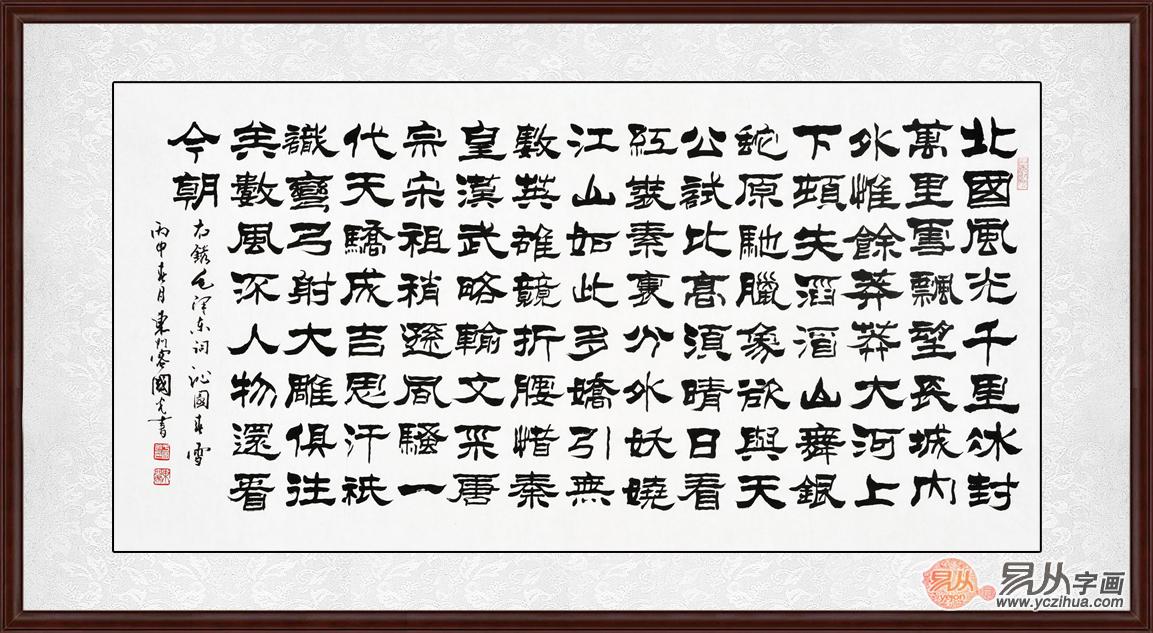 北國風光千里冰封
萬里雪飄望長城內
外惟餘莽莽大河上
下頓失滔滔山舞銀
蛇原馳臘象欲與天
公試比高須晴日看
紅裝素裹分外妖嬈
江山如此多嬌引無
數英雄競折腰惜秦
皇漢武略輸文采唐
宗宋祖稍遜風騷一
代天驕成吉思汗祇
識彎弓射大雕俱往
矣數風流人物還看
今朝
右錄毛澤东詞沁園春雪
丙申春月東客國光書
易从
yejon
易从字画
www.yczihua.com